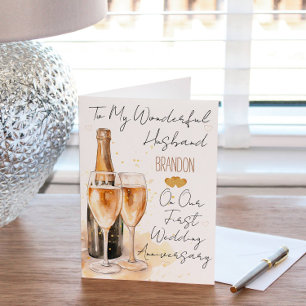 To My Wonderful
Husband
BRANDON
On Our
First
Wedding
Anniversary